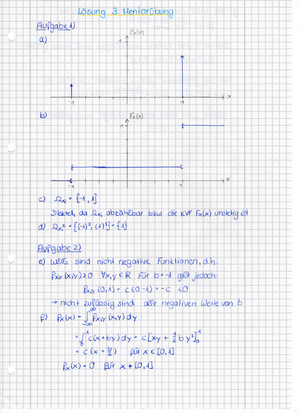 Lösung 3. Mentorübung
Aufgabe 1)
a)
Px(x)
1
x
-1
1
b)
Fx(x)
1
x
-1
1
c) Ωx = {-1, 1}
Diskret, da Ωx abzählbar bzw die KVF Fx(x) unstetig ist
d) Ωx² = {(-1)², (1)²} = {1}
Aufgabe 2)
e) WDFs sind nicht negative Funktionen, d.h.
fx,y(x,y) ≥ 0 ∀x,y ∈ R Für b = -1 gilt jedoch
fx,y(0,1) = c(0-1) = -c < 0
→ nicht zulässig sind alle negativen Werte von b
f) fx(x) = ∫ fx,y(x,y) dy
= ∫ c(x+by) dy = c[xy + ½ by²]
= c(x + b/2) für x ∈ [0,1]
fx(x) = 0 für x ∉ [0,1]